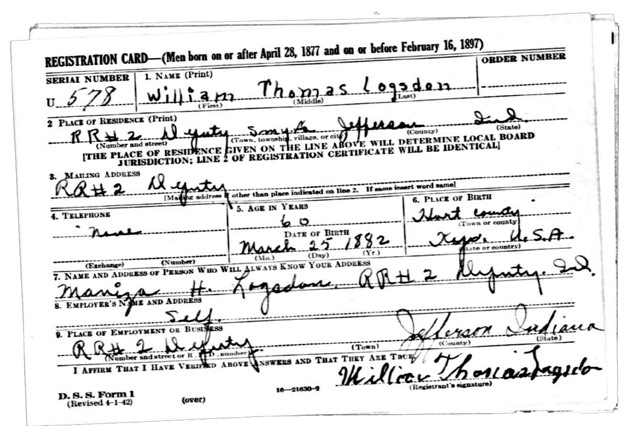 REGISTRATION CARD—(Men born on or after April 28, 1877 and on or before February 16, 1897)
SERIAL NUMBER 1. NAME (Print) ORDER NUMBER
U 578 William Thomas Logsdon
(First) (Middle) (Last)
2 PLACE OF RESIDENCE (Print)
RR#2 Deputy Smyrna Jefferson Ind
(Number and street) (Town, township, village, or city) (County) (State)
[THE PLACE OF RESIDENCE GIVEN ON THE LINE ABOVE WILL DETERMINE LOCAL BOARD
JURISDICTION; LINE 2 OF REGISTRATION CERTIFICATE WILL BE IDENTICAL]
3. MAILING ADDRESS
RR#2 Deputy
[Mailing address if other than place indicated on line 2. If same insert word same]
4. TELEPHONE 5. AGE IN YEARS 6. PLACE OF BIRTH
None 60 Hart County
DATE OF BIRTH (Town or county)
March 25 1882 Ky. U.S.A.
(Exchange) (Number) (Mo.) (Day) (Yr.) (State or country)
7. NAME AND ADDRESS OF PERSON WHO WILL ALWAYS KNOW YOUR ADDRESS
H. Logsdon, RR#2 Deputy, Id.
8. EMPLOYER'S NAME AND ADDRESS
Self
9. PLACE OF EMPLOYMENT OR BUSINESS
RR#2 Deputy Jefferson Indiana
(Number and street or R. F. D. number) (Town) (County) (State)
I AFFIRM THAT I HAVE VERIFIED ABOVE ANSWERS AND THAT THEY ARE TRUE.
William Thomas Logsdon
D. S. S. Form 1 16—21630-2 (Registrant's signature)
(Revised 4-1-42) (over)